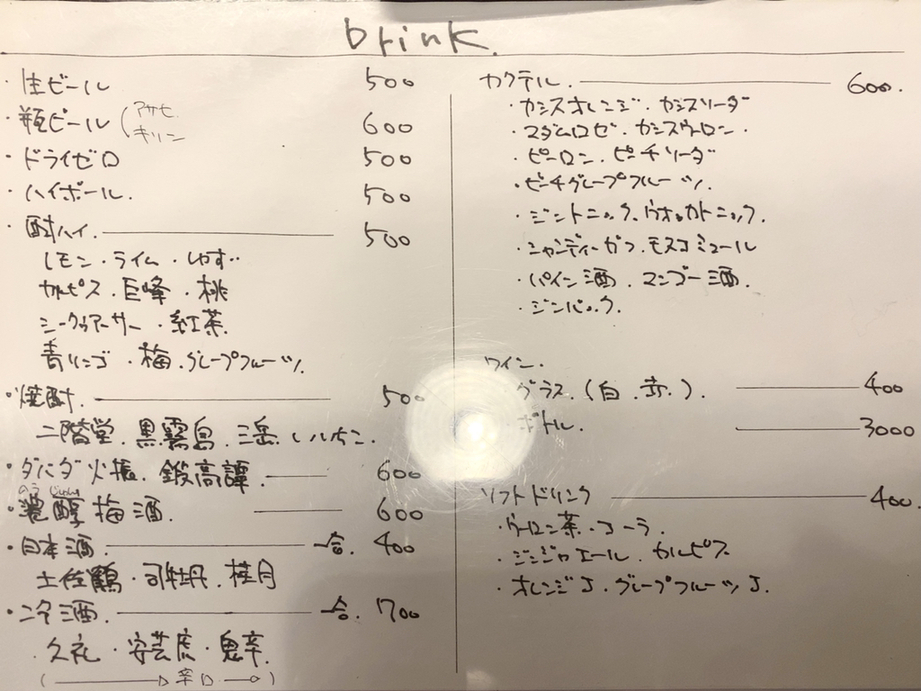 Drink.
・生ビール 500
・瓶ビール (アサヒ キリン 600
・ドライゼロ 500
・ハイボール. 500
・酎ハイ. 500
レモン・ライム・ゆず・
カルピス・巨峰・桃
シークヮーサー・紅茶.
青リンゴ・梅.グレープフルーツ.
・焼酎. 500
二階堂.黒霧島.三岳.いいちこ.
・ダバダ火振.鍛高譚. 600
のうじゅん
・濃醇梅酒. 600
・日本酒. 一合. 400
土佐鶴・司牡丹.桂月
・冷酒. 一合. 700
・久礼・安芸虎・鬼辛.
( 辛口 )
カクテル. 600.
・カシスオレンジ.カシスソーダ
・マダムロゼ.カシスウーロン.
・ピーロン.ピーチソーダ
・ピーチグレープフルーツ.
・ジントニック.ウオッカトニック.
・シャンディーガフ.モスコミュール
・パイン酒.マンゴー酒.
・ジンバック.
ワイン.
グラス.(白.赤.). 400
ボトル. 3000
ソフトドリンク 400.
・ウーロン茶・コーラ.
・ジンジャエール.カルピス
・オレンジJ.グレープフルーツJ.